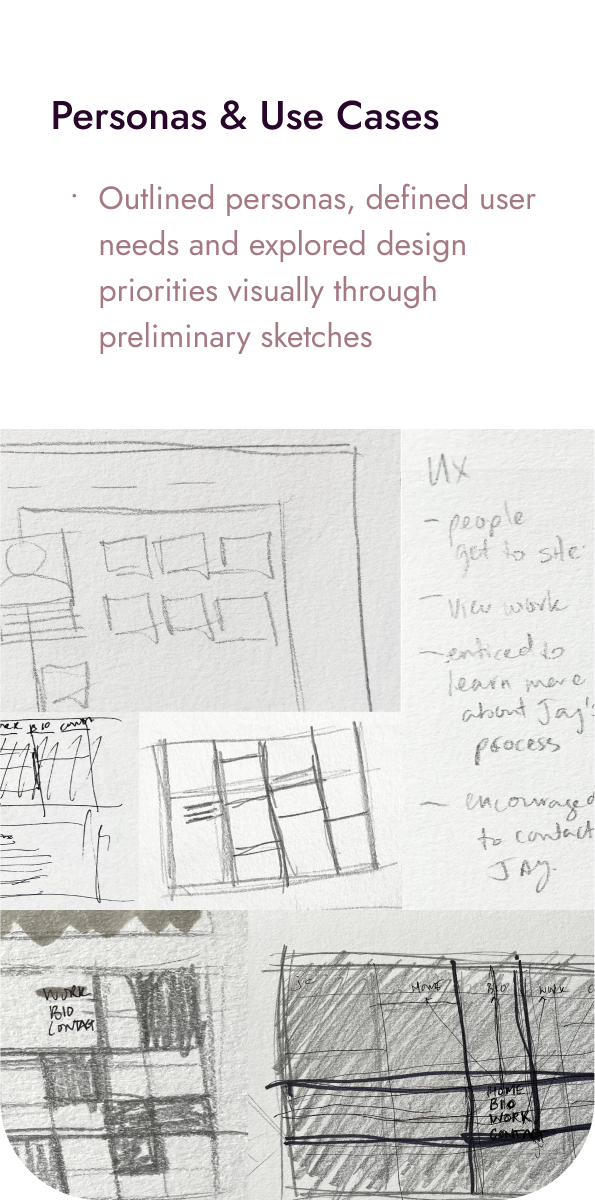 Personas & Use Cases
· Outlined personas, defined user
needs and explored design
priorities visually through
preliminary sketches
UX
- people
get to site
- view work
- enticed to
learn more
about Jay's
process
- encouraged
to contact
JAY.
BIO
WORK
BIO
CONTACT
HOME
BIO
WORK
HOME
BIO
WORK
CONTACT